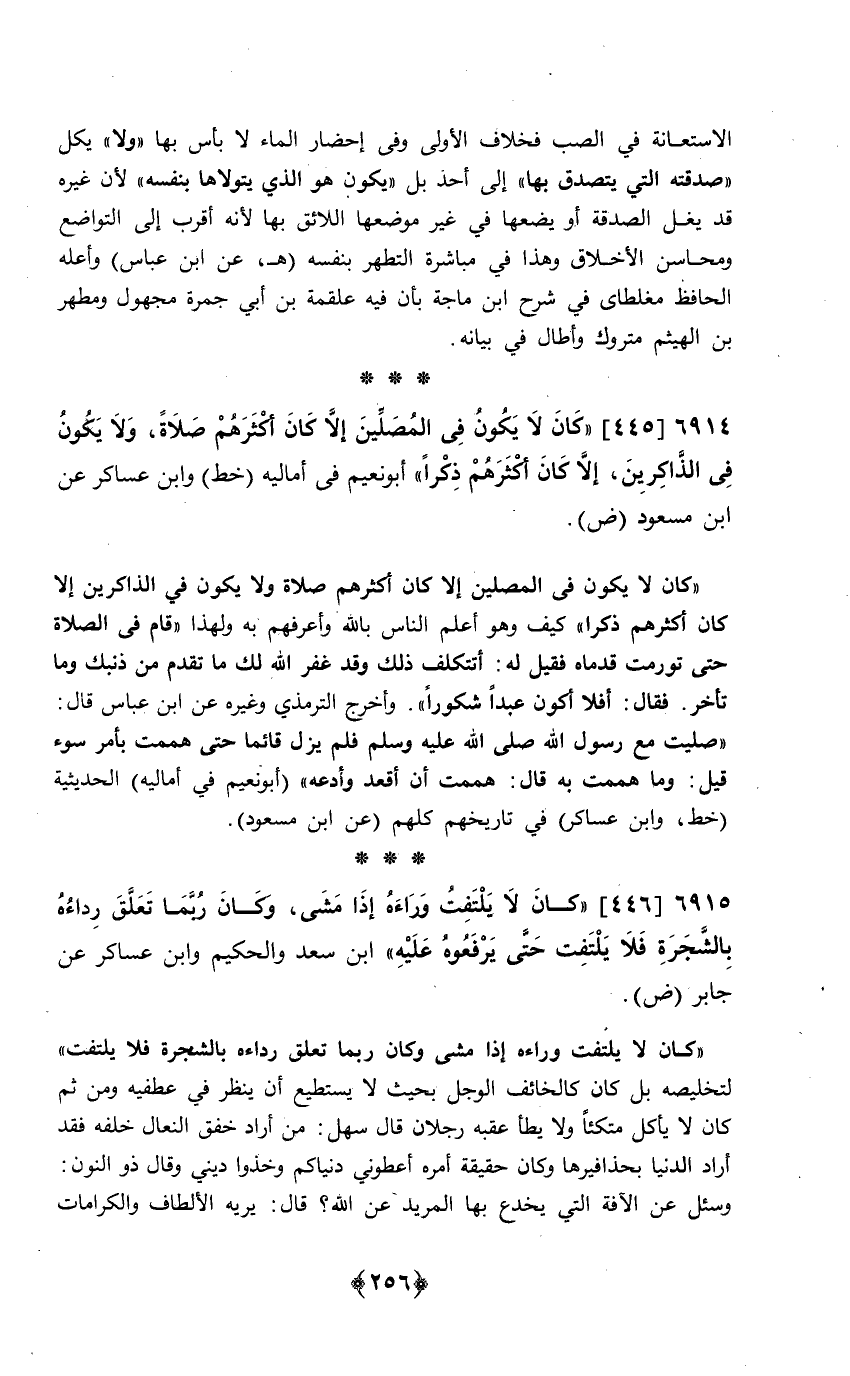 الاستعـانة في الصب فخلاف الأولى وفى إحضار الماء لا بأس بها «ولا» يكل
«صدقته التي يتصدق بها» إلى أحد بل «يكون هو الذي يتولاها بنفسه» لأن غيره
قد يغـل الصدقة أو يضعها في غير موضعها اللائق بها لأنه أقرب إلى التواضع
ومحـاسن الأخـلاق وهذا في مباشرة التطهر بنفسه (هـ، عن ابن عباس) وأعله
الحافظ مغلطاى في شرح ابن ماجة بأن فيه علقمة بن أبي جمرة مجهول ومطهر
بن الهيثم متروك وأطال في بيانه.
* * *
٦٩١٤ [٤٤٥] «كَانَ لَا يَكُونُ فِى المُصَلِّينَ إلَّا كَانَ أكْثَرَهُمْ صَلَاةً، وَلَا يَكُونُ
فِى الذَّاكِرِينَ، إلَّا كَانَ أكْثَرَهُمْ ذِكْراً» أبونعيم فى أماليه (خط) وابن عساكر عن
ابن مسعود (ض).
«كان لا يكون فى المصلين إلا كان أكثرهم صلاة ولا يكون في الذاكرين إلا
كان أكثرهم ذكرا» كيف وهو أعلم الناس بالله وأعرفهم به ولهذا «قام فى الصلاة
حتى تورمت قدماه فقيل له: أتتكلف ذلك وقد غفر الله لك ما تقدم من ذنبك وما
تأخر. فقال: أفلا أكون عبداً شكوراً». وأخرج الترمذي وغيره عن ابن عباس قال:
«صليت مع رسول الله صلى الله عليه وسلم فلم يزل قائما حتى هممت بأمر سوء
قيل: وما هممت به قال: هممت أن أقعد وأدعه» (أبونعيم في أماليه) الحديثية
(خط، وابن عساكر) في تاريخهم كلهم (عن ابن مسعود).
* * *
٦٩١٥ [٤٤٦] «كـانَ لَا يَلْتَفِتُ وَرَاءَهُ إذَا مَشَى، وَكَـانَ رُبَّمَا تَعَلَّقَ رِداءُهُ
بِالشَّجَرَةِ فَلَا يَلْتَفِت حَتَّى يَرْفَعُوهُ عَلَيْهِ» ابن سعد والحكيم وابن عساكر عن
جابر (ض).
«كـان لا يلتفت وراءه إذا مشى وكان ربما تعلق رداءه بالشجرة فلا يلتفت»
لتخليصه بل كان كالخائف الوجل بحيث لا يستطيع أن ينظر في عطفيه ومن ثم
كان لا يأكل متكئاً ولا يطأ عقبه رجلان قال سهل: من أراد خفق النعال خلفه فقد
أراد الدنيا بحذافيرها وكان حقيقة أمره أعطوني دنياكم وخذوا ديني وقال ذو النون:
وسئل عن الآفة التي يخدع بها المريد عن الله؟ قال: يريه الألطاف والكرامات
﴿٢٥٦﴾